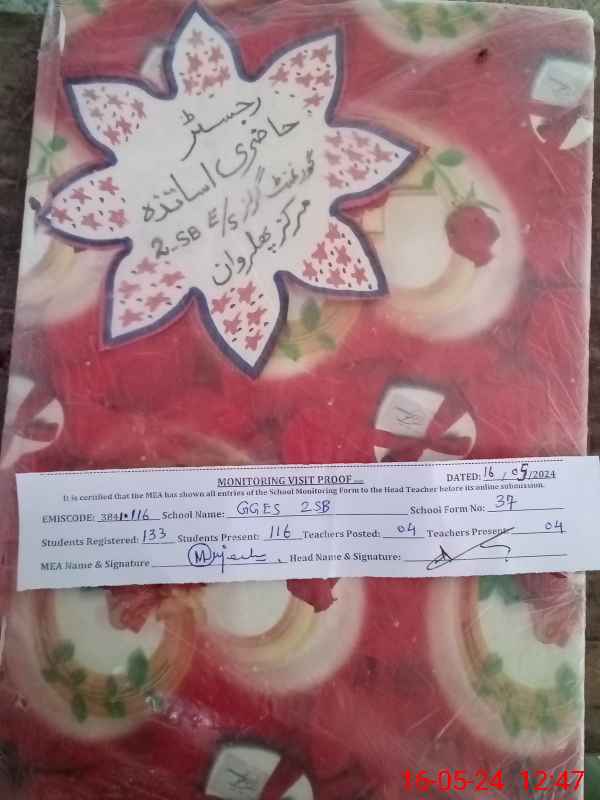 رجسٹر
حاضری اساتذہ
گورنمنٹ گرلز E/S 2-SB
مرکز پھلروان
MONITORING VISIT PROOF
DATED: 16 / 05 /2024
It is certified that the MEA has shown all entries of the School Monitoring Form to the Head Teacher before its online submission.
EMISCODE: 3841 116 School Name: GGES 2SB School Form No: 37
Students Registered: 133 Students Present: 116 Teachers Posted: 04 Teachers Present 04
MEA Name & Signature Head Name & Signature:
16-05-24 12:47